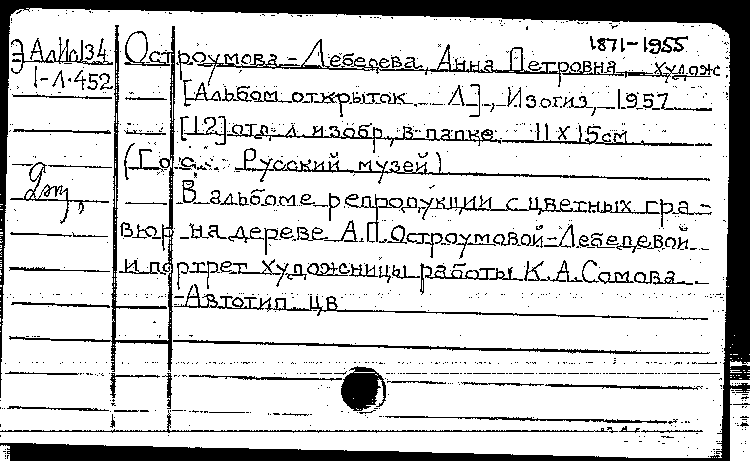 1871-1955
Э АлИс134
1-Л.452
Остроумова-Лебедева, Анна Петровна, худож
[Альбом открыток Л], Изогиз, 1957
[12] отд. л. изобр., в папке. 11 х 15 см.
(Гос. Русский музей)
В альбоме репродукции с цветных гра-
вюр на дереве А.П.Остроумовой-Лебедевой
и портрет художницы работы К.А.Сомова.
-Автотип. цв